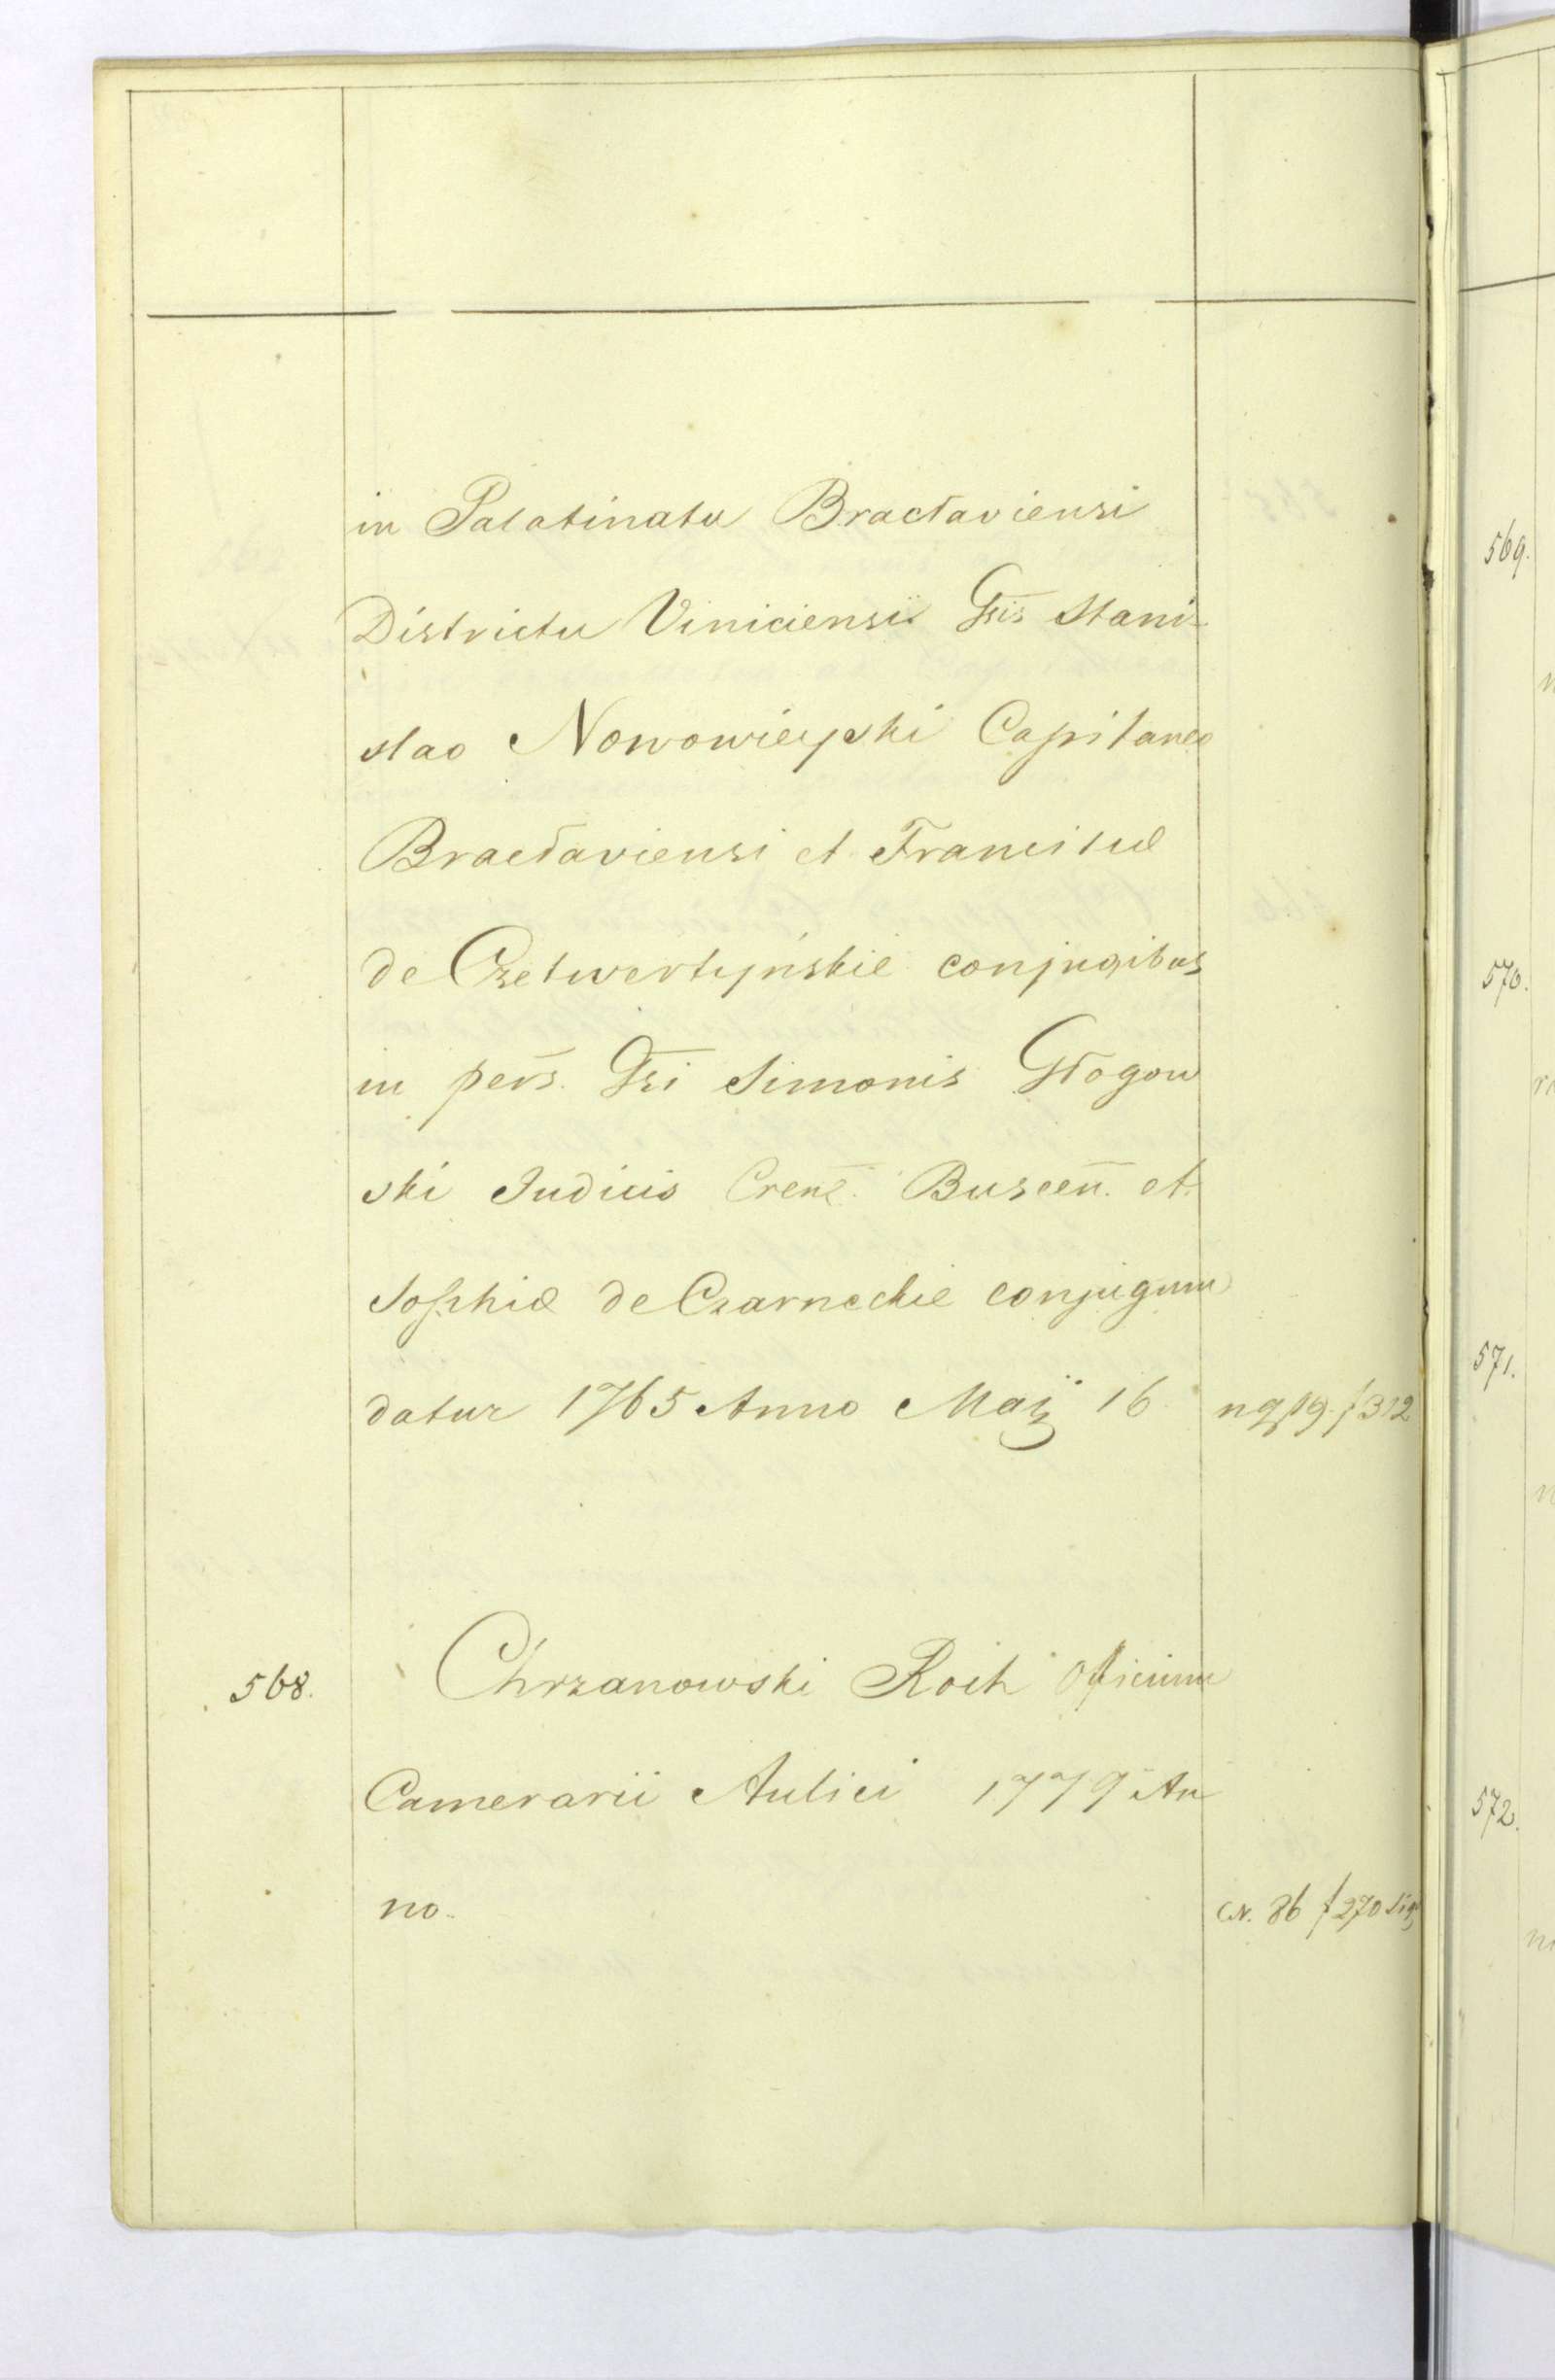 in Palatinatu Bracłaviensi
Districtu Viniciensi Gsis Stani-
slao Nowowieyski Capitaneo
Bracłaviensi et Francisca
de Czetwertyńskie conjugibus
in pers. Gsi Simonis Głogow
ski Judicis Buscen. et
Sophiæ de Czarneckie conjugum
datur 1765 Anno Maij 16 f 312
568. Chrzanowski Roch Officium
Camerarii Aulici 1779 An
no. N. 86 f 270 Sig
569.
570.
571.
572.